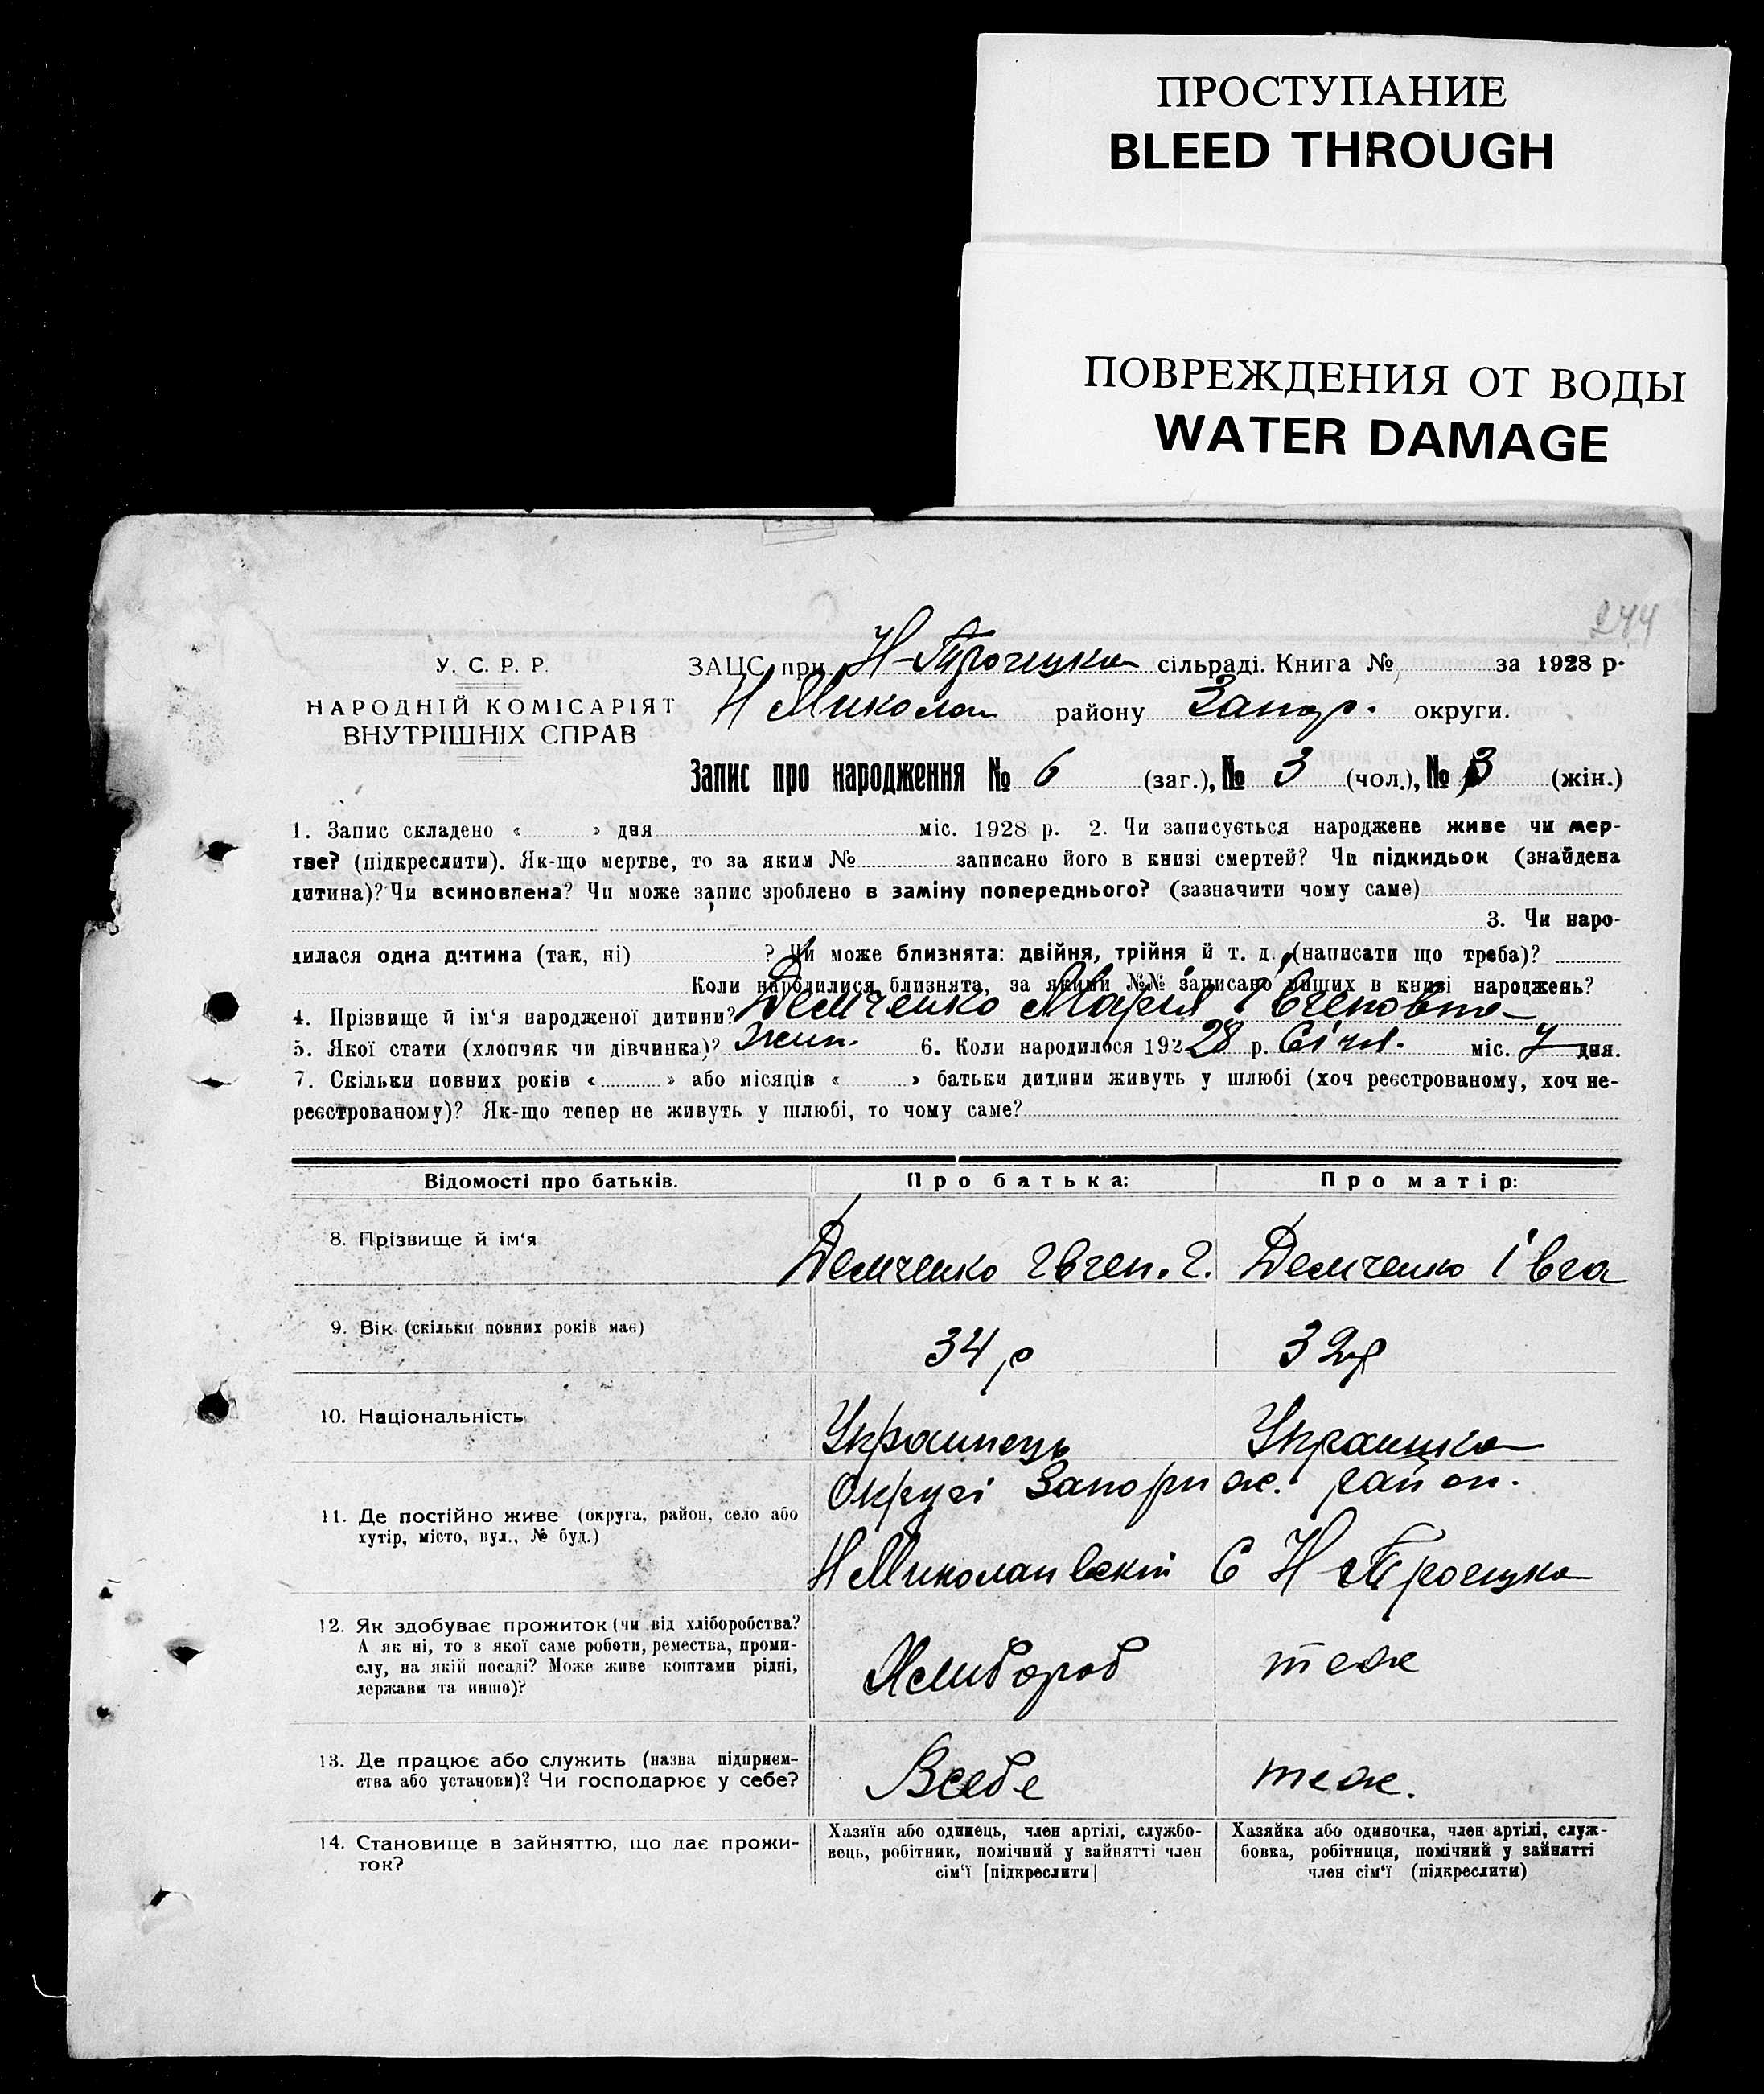 ПРОСТУПАНИЕ
BLEED THROUGH
ПОВРЕЖДЕНИЯ ОТ ВОДЫ
WATER DAMAGE
244
У. С. Р. Р.
НАРОДНІЙ КОМІСАРІЯТ
ВНУТРІШНІХ СПРАВ
ЗАЦС при Н-Троецка сільраді. Книга № за 1928 р.
Н Микола району Запор. округи.
Запис про народження № 6 (заг.), № 3 (чол.), № 3 (жін.)
1. Запис складено « » дня міс. 1928 р. 2. Чи записується народжене живе чи мер-
тве? (підкреслити). Як-що мертве, то за яким № записано його в книзі смертей? Чи підкидьок (знайдена
дитина)? Чи всиновлена? Чи може запис зроблено в заміну попереднього? (зазначити чому саме)
3. Чи наро-
дилася одна дитина (так, ні) ? Чи може близнята: двійня, трійня й т. д. (написати що треба)?
Коли народилися близнята, за якими №№ записано инших в книзі народжень?
4. Прізвище й ім‘я народженої дитини? Демченко Марія Івгеновна
5. Якої стати (хлопчик чи дівчинка)? Жин. 6. Коли народилося 192 28 р. Січл. міс. 7 дня.
7. Скільки повних років « » або місяців « » батьки дитини живуть у шлюбі (хоч реєстрованому, хоч не-
реєстрованому)? Як-що тепер не живуть у шлюбі, то чому саме?
Відомості про батьків. Про батька: Про матір:
8. Прізвище й ім‘я Демченко Івген. Г. Демченко Івга
9. Вік (скільки повних років має) 34 р 32 р
10. Національність Украинець Украицка
Округі Запориж. район.
11. Де постійно живе (округа, район, село або
хутір, місто, вул., № буд.)
Н Миколаивский С Н Троецка
12. Як здобуває прожиток (чи від хліборобства?
А як ні, то з якої саме роботи, ремества, проми-
слу, на якій посаді? Може живе коштами рідні,
держави та инше)?
Хлибороб теж
13. Де працює або служить (назва підприєм-
ства або установи)? Чи господарює у себе?
Всебе теж.
14. Становище в зайняттю, що дає прожи-
ток?
Хазяїн або одинець, член артілі, службо-
вець, робітник, помічний у зайнятті член
сім‘ї [підкреслити]
Хазяйка або одиночка, член артілі, служ-
бовка, робітниця, помічний у зайнятті
член сім‘ї (підкреслити)